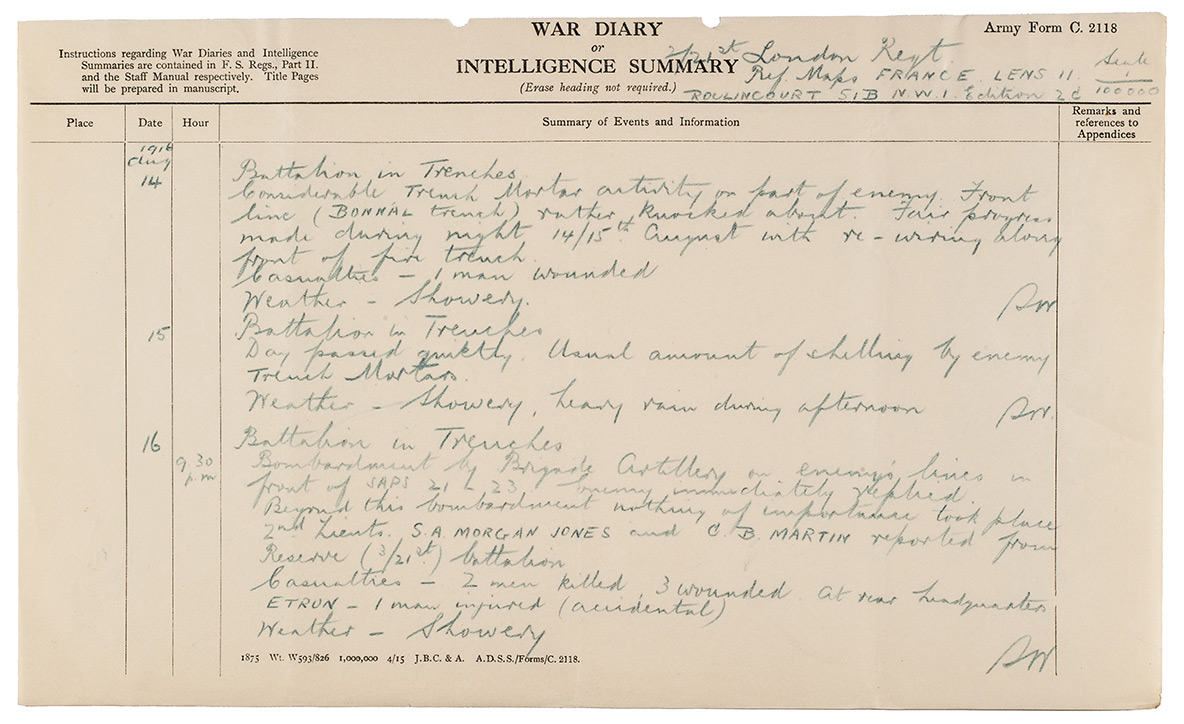 WAR DIARY
or
INTELLIGENCE SUMMARY
(Erase heading not required.)
Army Form C. 2118
Instructions regarding War Diaries and Intelligence
Summaries are contained in F. S. Regs., Part II.
and the Staff Manual respectively. Title Pages
will be prepared in manuscript.
2/21st London Regt.
Ref. Maps FRANCE. LENS 11. Scale
1
100000
ROULINCOURT 51B N.W.1. Edition 2c
Place
Date
Hour
Summary of Events and Information
Remarks and
references to
Appendices
1916
Aug
14
Battalion in Trenches
Considerable Trench Mortar activity on part of enemy. Front
line (BONNAL trench) rather knocked about. Fair progress
made during night 14/15th August with re-wiring along
front of fire trench.
Casualties - 1 man wounded
Weather - Showery.
15
Battalion in Trenches
Day passed quietly. Usual amount of shelling by enemy
Trench Mortars.
Weather - Showery, heavy rain during afternoon
16
Battalion in Trenches
9.30
p.m
Bombardment by Brigade Artillery on enemy's lines in
front of SAPS 21 & 23. Enemy immediately replied.
Beyond this bombardment nothing of importance took place
2nd Lieuts. S.A. MORGAN JONES and C. B. MARTIN reported from
Reserve (3/21st.) battalion
Casualties - 2 men killed, 3 wounded. At rear headquarters
ETRUN - 1 man injured (accidental)
Weather - Showery
1875 Wt. W593/826 1,000,000 4/15 J.B.C. & A. A.D.S.S./Forms/C. 2118.